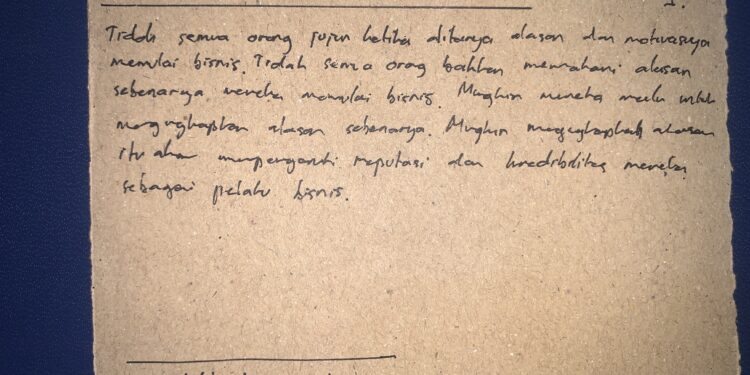 Tidak semua orang jujur ketika ditanya alasan dan motivasinya
memulai bisnis. Tidak semua orang bahkan memahami alasan
sebenarnya mereka memulai bisnis. Mungkin mereka malu untuk
mengungkapkan alasan sebenarnya. Mungkin mengungkapkan alasan
itu akan mempengaruhi reputasi dan kredibilitas mereka
sebagai pelaku bisnis.